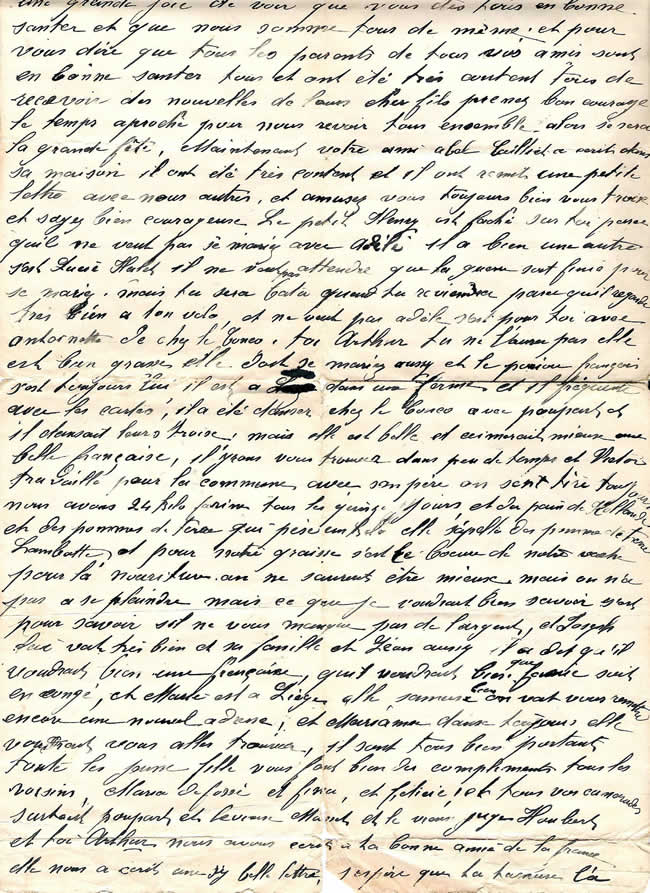 une grande joie de voir que vous êtes tous en bonne
santer et que nous somme tous de même. et pour
vous dire que tous les parents de tous vos amis sont
en bonne santer tous et ont été très content tous de
recevoir des nouvelles de leurs cher fils prenez bon courage
le temps aproche pour nous revoir tous ensemble alors se sera
la grande fête, Maintenant votre ami abel a ecrit dans
sa maison il ont été très contant et il ont remit une petite
lettre avec nous autres, et amusez vous toujours bien vous trois
et soyez bien courageuse Le petit Henry est faché sur toi parce
qu'il ne veut pas se marier avec adèle il a bien une autre
s'est Lucie il ne veut pas attendre que la guerre soit finie pour
se marier. mais tu sera quand tu reviendra parce qu'il regarde
très bien a ton velo, et ne veut pas adèle s'est pour toi avec
antoinette de chez le Bosco. toi Arthur tu ne l'aura pas elle
est bien grasse elle doit se marier aussy et le français
s'est toujours lui il est a dans une ferme et il fréquente
avec les cartes, il a été danser chez le bosco avec poupart et
il dansait leurs troise. mais elle est belle et eimerait mieux une
belle française, il vous trouver dans peu de temps et Victor
travaille pour la commune avec son père on sont tiré toujours
nous avons 24 kilo farine tous les quinze jours et du pain de Hollande
et des pommes de terre qui pèse un kilo elle s'apelle des pomme de terre
Lambotte, et pour notre graisse s'est le beure de notre vache
pour la nouriture on ne saurait être mieux mais on n'a
pas a se plaindre mais ce que je voudrait bien savoir s'est
pour savoir s'il ne vous manque pas de l'argent, et Joseph
vat très bien et sa famille et Léon aussy il a dit qu'il
voudrait bien une française, qu'il voudrait bien que soit
en congé, et Marie est a Liège elle s'amuse bien on vat vous remettre
encore une nouvel adresse, et Marianne danse toujours elle
voudrait vous aller trouver, il sont tous bien portants
toute les jeune fille vous font bien des compliments tous les
voisins, Maria defossé et fina, et félicie, et tous vos camarades
surtout poupart et et le vieux juge Haubert
et toi Arthur nous avons ecrit à ta bonne amie de la france
elle nous a ecrit une si belle lettre, j'espère que tu l'a